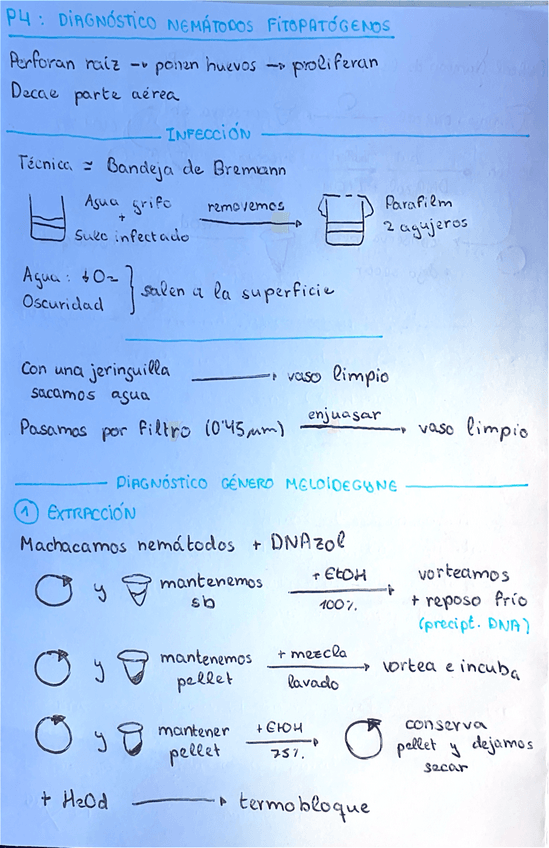 P4: DIAGNÓSTICO NEMÁTODOS FITOPATÓGENOS
Perforan raíz → ponen huevos → proliferan
Decae parte aérea
INFECCIÓN
Técnica = Bandeja de Bremann
Agua grifo
+
Suelo infectado
removemos
Parafilm
2 agujeros
Agua: ↓O2
Oscuridad
salen a la superficie
Con una jeringuilla
sacamos agua
→ vaso limpio
Pasamos por filtro (0'45 µm)
enjuagar
→ vaso limpio
DIAGNÓSTICO GÉNERO MELOIDEGYNE
1 EXTRACCIÓN
Machacamos nemátodos + DNAzol
y
mantenemos
sb
+ EtOH
100%.
vorteamos
+ reposo frío
(precipt. DNA)
y
mantenemos
pellet
+ mezcla
lavado
vortea e incuba
y
mantener
pellet
+ EtOH
75%.
conserva
pellet y dejamos
secar
+ H2Od → termobloque